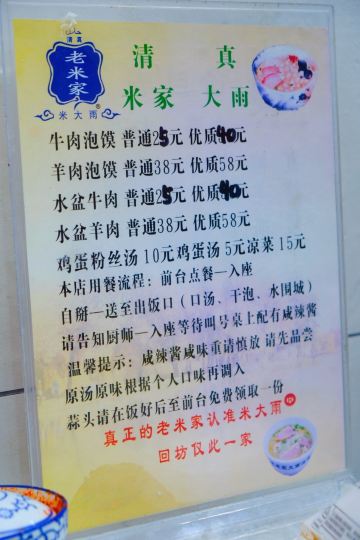 清真
老米家
米大雨®
清 真
米家 大雨
牛肉泡馍 普通25元 优质40元
羊肉泡馍 普通38元 优质58元
水盆牛肉 普通25元 优质40元
水盆羊肉 普通38元 优质58元
鸡蛋粉丝汤 10元 鸡蛋汤 5元 凉菜 15元
本店用餐流程：前台点餐—入座
自掰—送至出饭口（口汤、干泡、水围城）
请告知厨师—入座等待叫号桌上配有咸辣酱
温馨提示：咸辣酱咸味重请慎放 请先品尝
原汤原味根据个人口味再调入
蒜头请在饭好后至前台免费领取一份
真正的老米家认准米大雨
回坊仅此一家